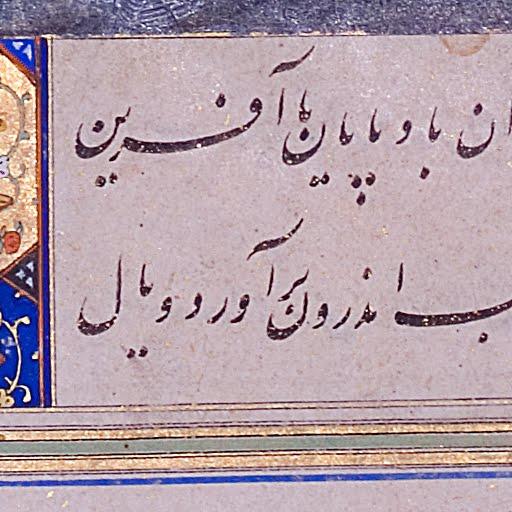 ان باد پایان با آفرین
ب اندرون بر آورد و یال